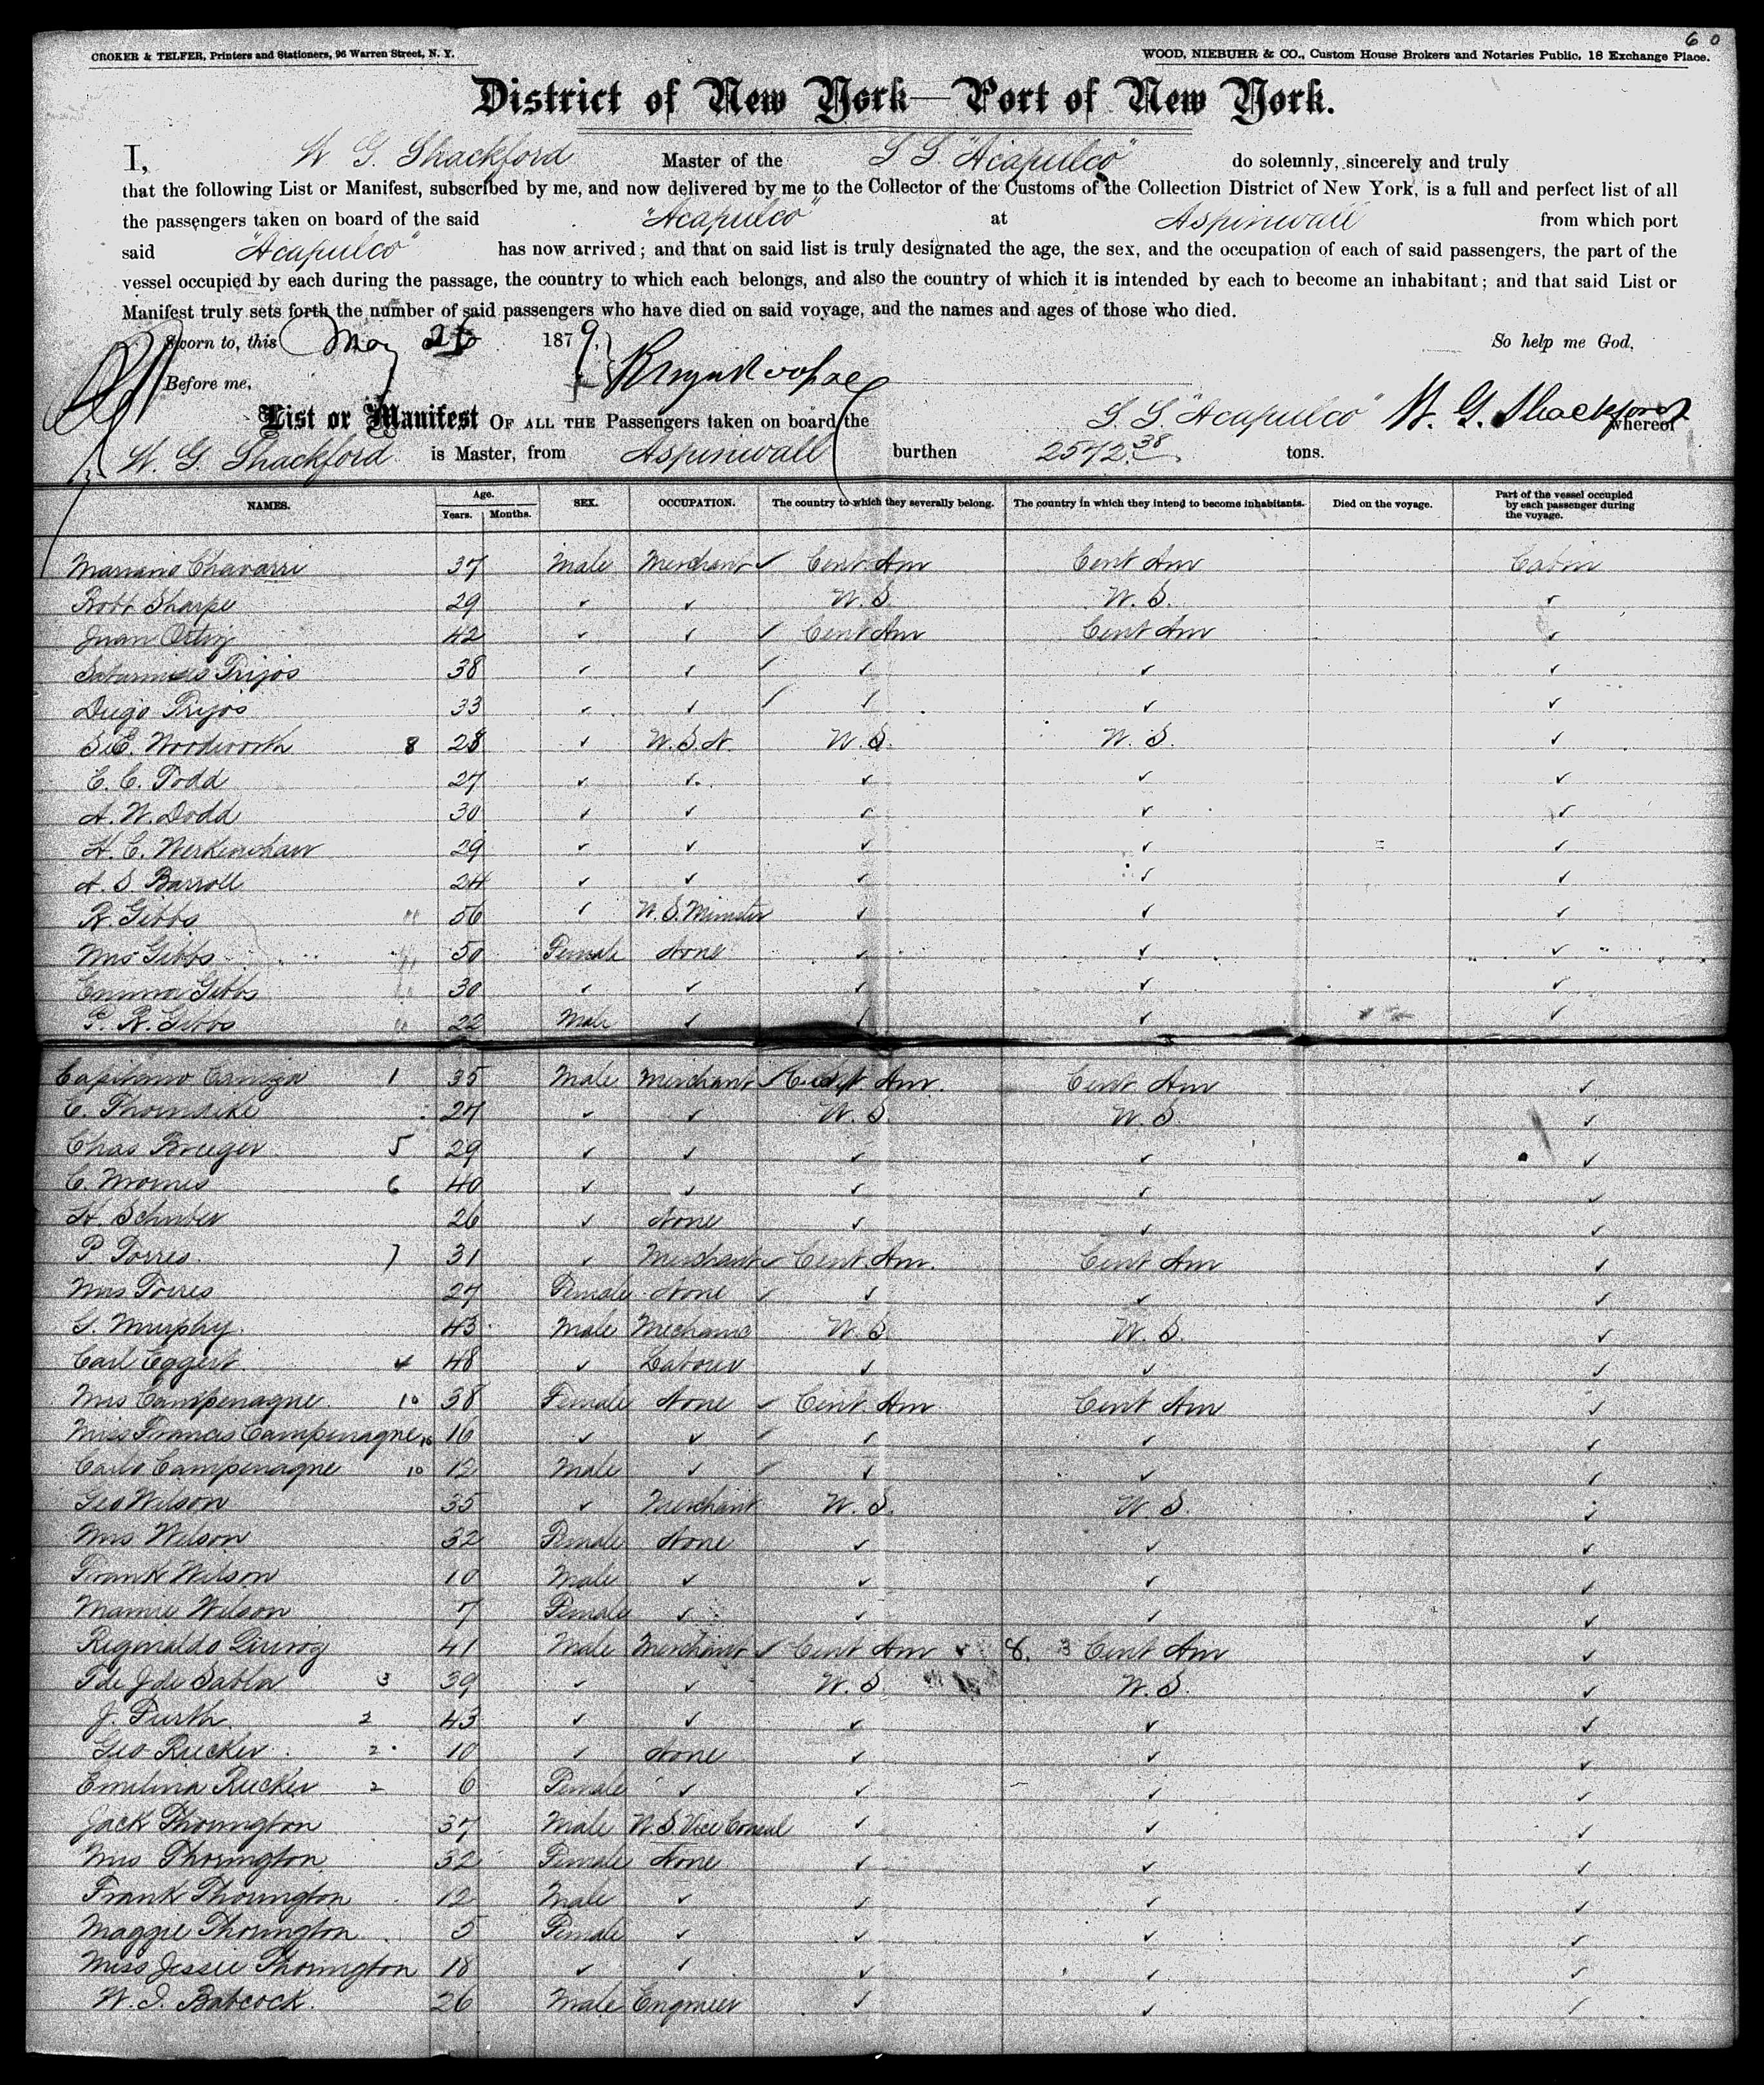 60
CROKER & TELFER, Printers and Stationers, 96 Warren Street, N. Y. WOOD, NIEBUHR & CO., Custom House Brokers and Notaries Public, 18 Exchange Place.
District of New York—Port of New York.
I, W G Shackford Master of the S S "Acapulco" do solemnly, sincerely and truly
that the following List or Manifest, subscribed by me, and now delivered by me to the Collector of the Customs of the Collection District of New York, is a full and perfect list of all
the passengers taken on board of the said "Acapulco" at Aspinwall from which port
said "Acapulco" has now arrived; and that on said list is truly designated the age, the sex, and the occupation of each of said passengers, the part of the
vessel occupied by each during the passage, the country to which each belongs, and also the country of which it is intended by each to become an inhabitant; and that said List or
Manifest truly sets forth the number of said passengers who have died on said voyage, and the names and ages of those who died.
Sworn to, this May 1879, So help me God,
Before me,
List or Manifest OF ALL THE Passengers taken on board the S. S. "Acapulco" W. G. Shackford whereof
W. G. Shackford is Master, from Aspinwall burthen 2572.38 tons.
NAMES. Age. Years. Months. SEX. OCCUPATION. The country to which they severally belong. The country in which they intend to become inhabitants. Died on the voyage. Part of the vessel occupied by each passenger during the voyage.
Mariano Chavarri 37 Male Merchant ✓ Cent Am Cent Am Cabin
Robt Sharpe 29 ✓ ✓ U. S. U. S. ✓
Juan Ortiz 42 ✓ ✓ ✓ Cent Am Cent Am ✓
Trijos 38 ✓ ✓ ✓ ✓ ✓ ✓
Diego Trijos 33 ✓ ✓ ✓ ✓ ✓ ✓
S. E. Woodworth 8 28 ✓ U. S. N. U. S. U. S. ✓
C. C. Todd 27 ✓ ✓ ✓ ✓ ✓
A. W. Dodd 30 ✓ ✓ ✓ ✓ ✓
H. C. 29 ✓ ✓ ✓ ✓ ✓
A. S. Barroll 24 ✓ ✓ ✓ ✓ ✓
R. Gibbs 11 56 ✓ U. S. Minister ✓ ✓ ✓
Mrs Gibbs 11 50 Female None ✓ ✓ ✓
Emma Gibbs 11 30 ✓ ✓ ✓ ✓ ✓
P. R. Gibbs 11 22 Male ✓ ✓ ✓ ✓
1 35 Male Merchant ✓ Cent Am. Cent Am ✓
C. Thorndike 27 ✓ ✓ U. S. U. S. ✓
Chas Krueger 5 29 ✓ ✓ ✓ ✓ ✓
C. 6 40 ✓ ✓ ✓ ✓ ✓
H. Schuber 26 ✓ None ✓ ✓ ✓
P. Torres 7 31 ✓ Merchant ✓ Cent. Am. Cent Am ✓
Mrs Torres 27 Female None ✓ ✓ ✓ ✓
G. Murphy 43 Male Mechanic U. S. U. S. ✓
Carl Eggert 4 48 ✓ Labour ✓ ✓ ✓
Mrs Campenagne 10 38 Female None ✓ Cent. Am Cent Am ✓
Miss Francis Campenagne 10 16 ✓ ✓ ✓ ✓ ✓ ✓
Carlo Campenagne 10 12 Male ✓ ✓ ✓ ✓ ✓
Geo Wilson 35 ✓ Merchant U. S. U. S. ✓
Mrs Wilson 32 Female None ✓ ✓ ✓
Frank Wilson 10 Male ✓ ✓ ✓ ✓
Mamie Wilson 7 Female ✓ ✓ ✓ ✓
Reginaldo 41 Male Merchant ✓ Cent Am ✓ 8. 3 Cent Am ✓
T de J de Sabla 3 39 ✓ ✓ U. S. U. S. ✓
J. Furth 2 43 ✓ ✓ ✓ ✓ ✓
Geo Rucker 2 10 ✓ None ✓ ✓ ✓
Emelina Rucker 2 6 Female ✓ ✓ ✓ ✓
Jack Thorington 37 Male U. S. Vice Consul ✓ ✓ ✓
Mrs Thorington 32 Female None ✓ ✓ ✓
Frank Thorington 12 Male ✓ ✓ ✓ ✓
Maggie Thorington 5 Female ✓ ✓ ✓ ✓
Miss Jessie Thorington 18 ✓ ✓ ✓ ✓ ✓
W. I. Babcock 26 Male Engineer ✓ ✓ ✓